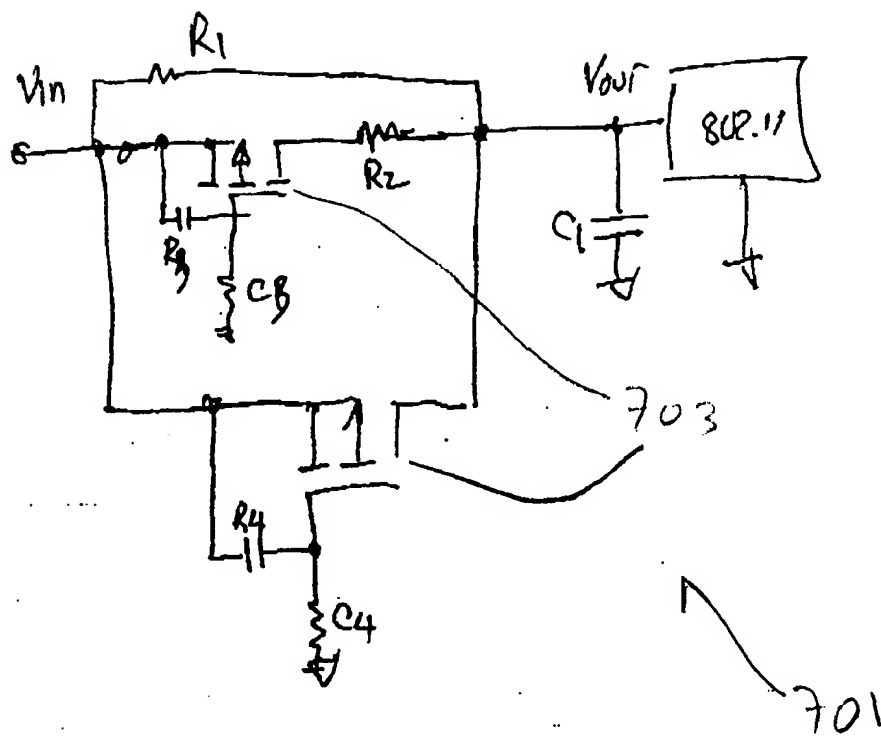 R1
Vin
Vout
802.11
R2
C1
R3
C3
703
R4
C4
701